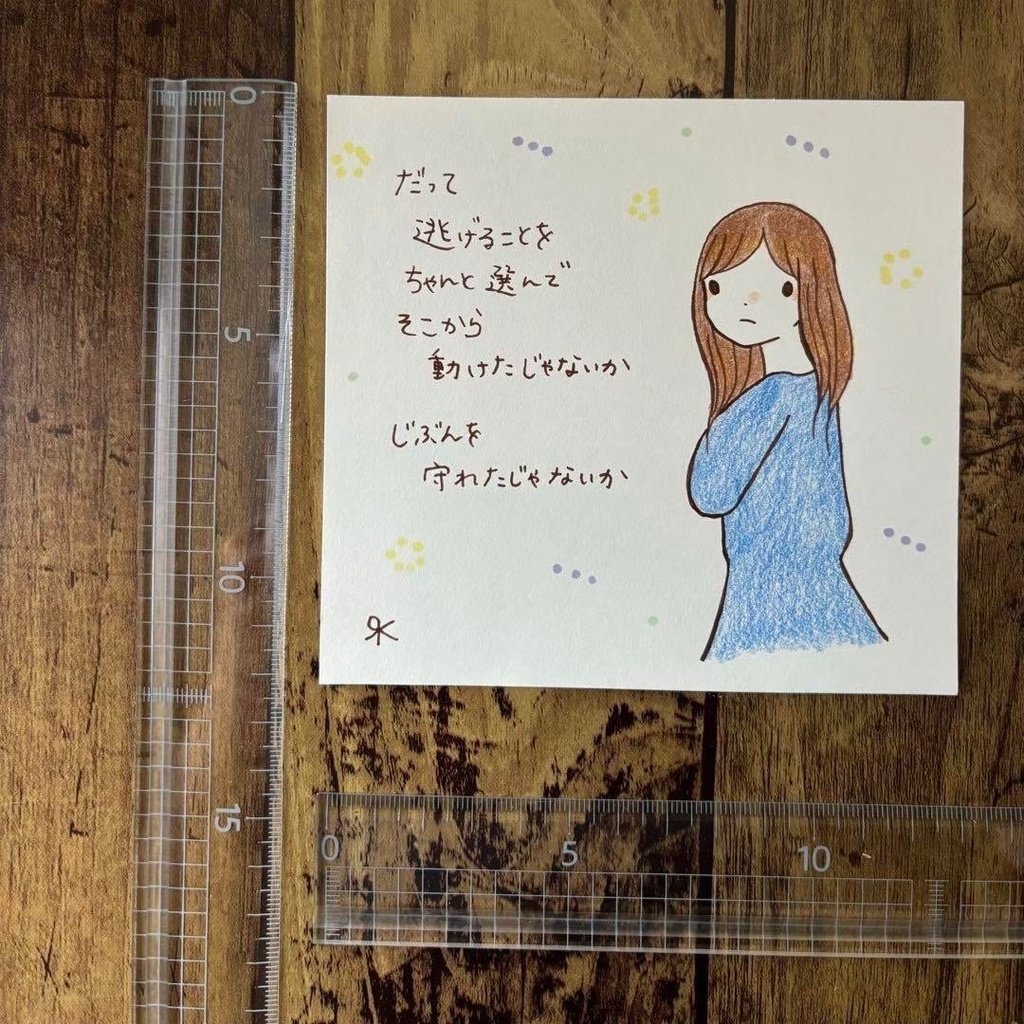 だって
逃げることを
ちゃんと選んで
そこから
動けたじゃないか
じぶんを
守れたじゃないか
0
5
10
15
0
5
10